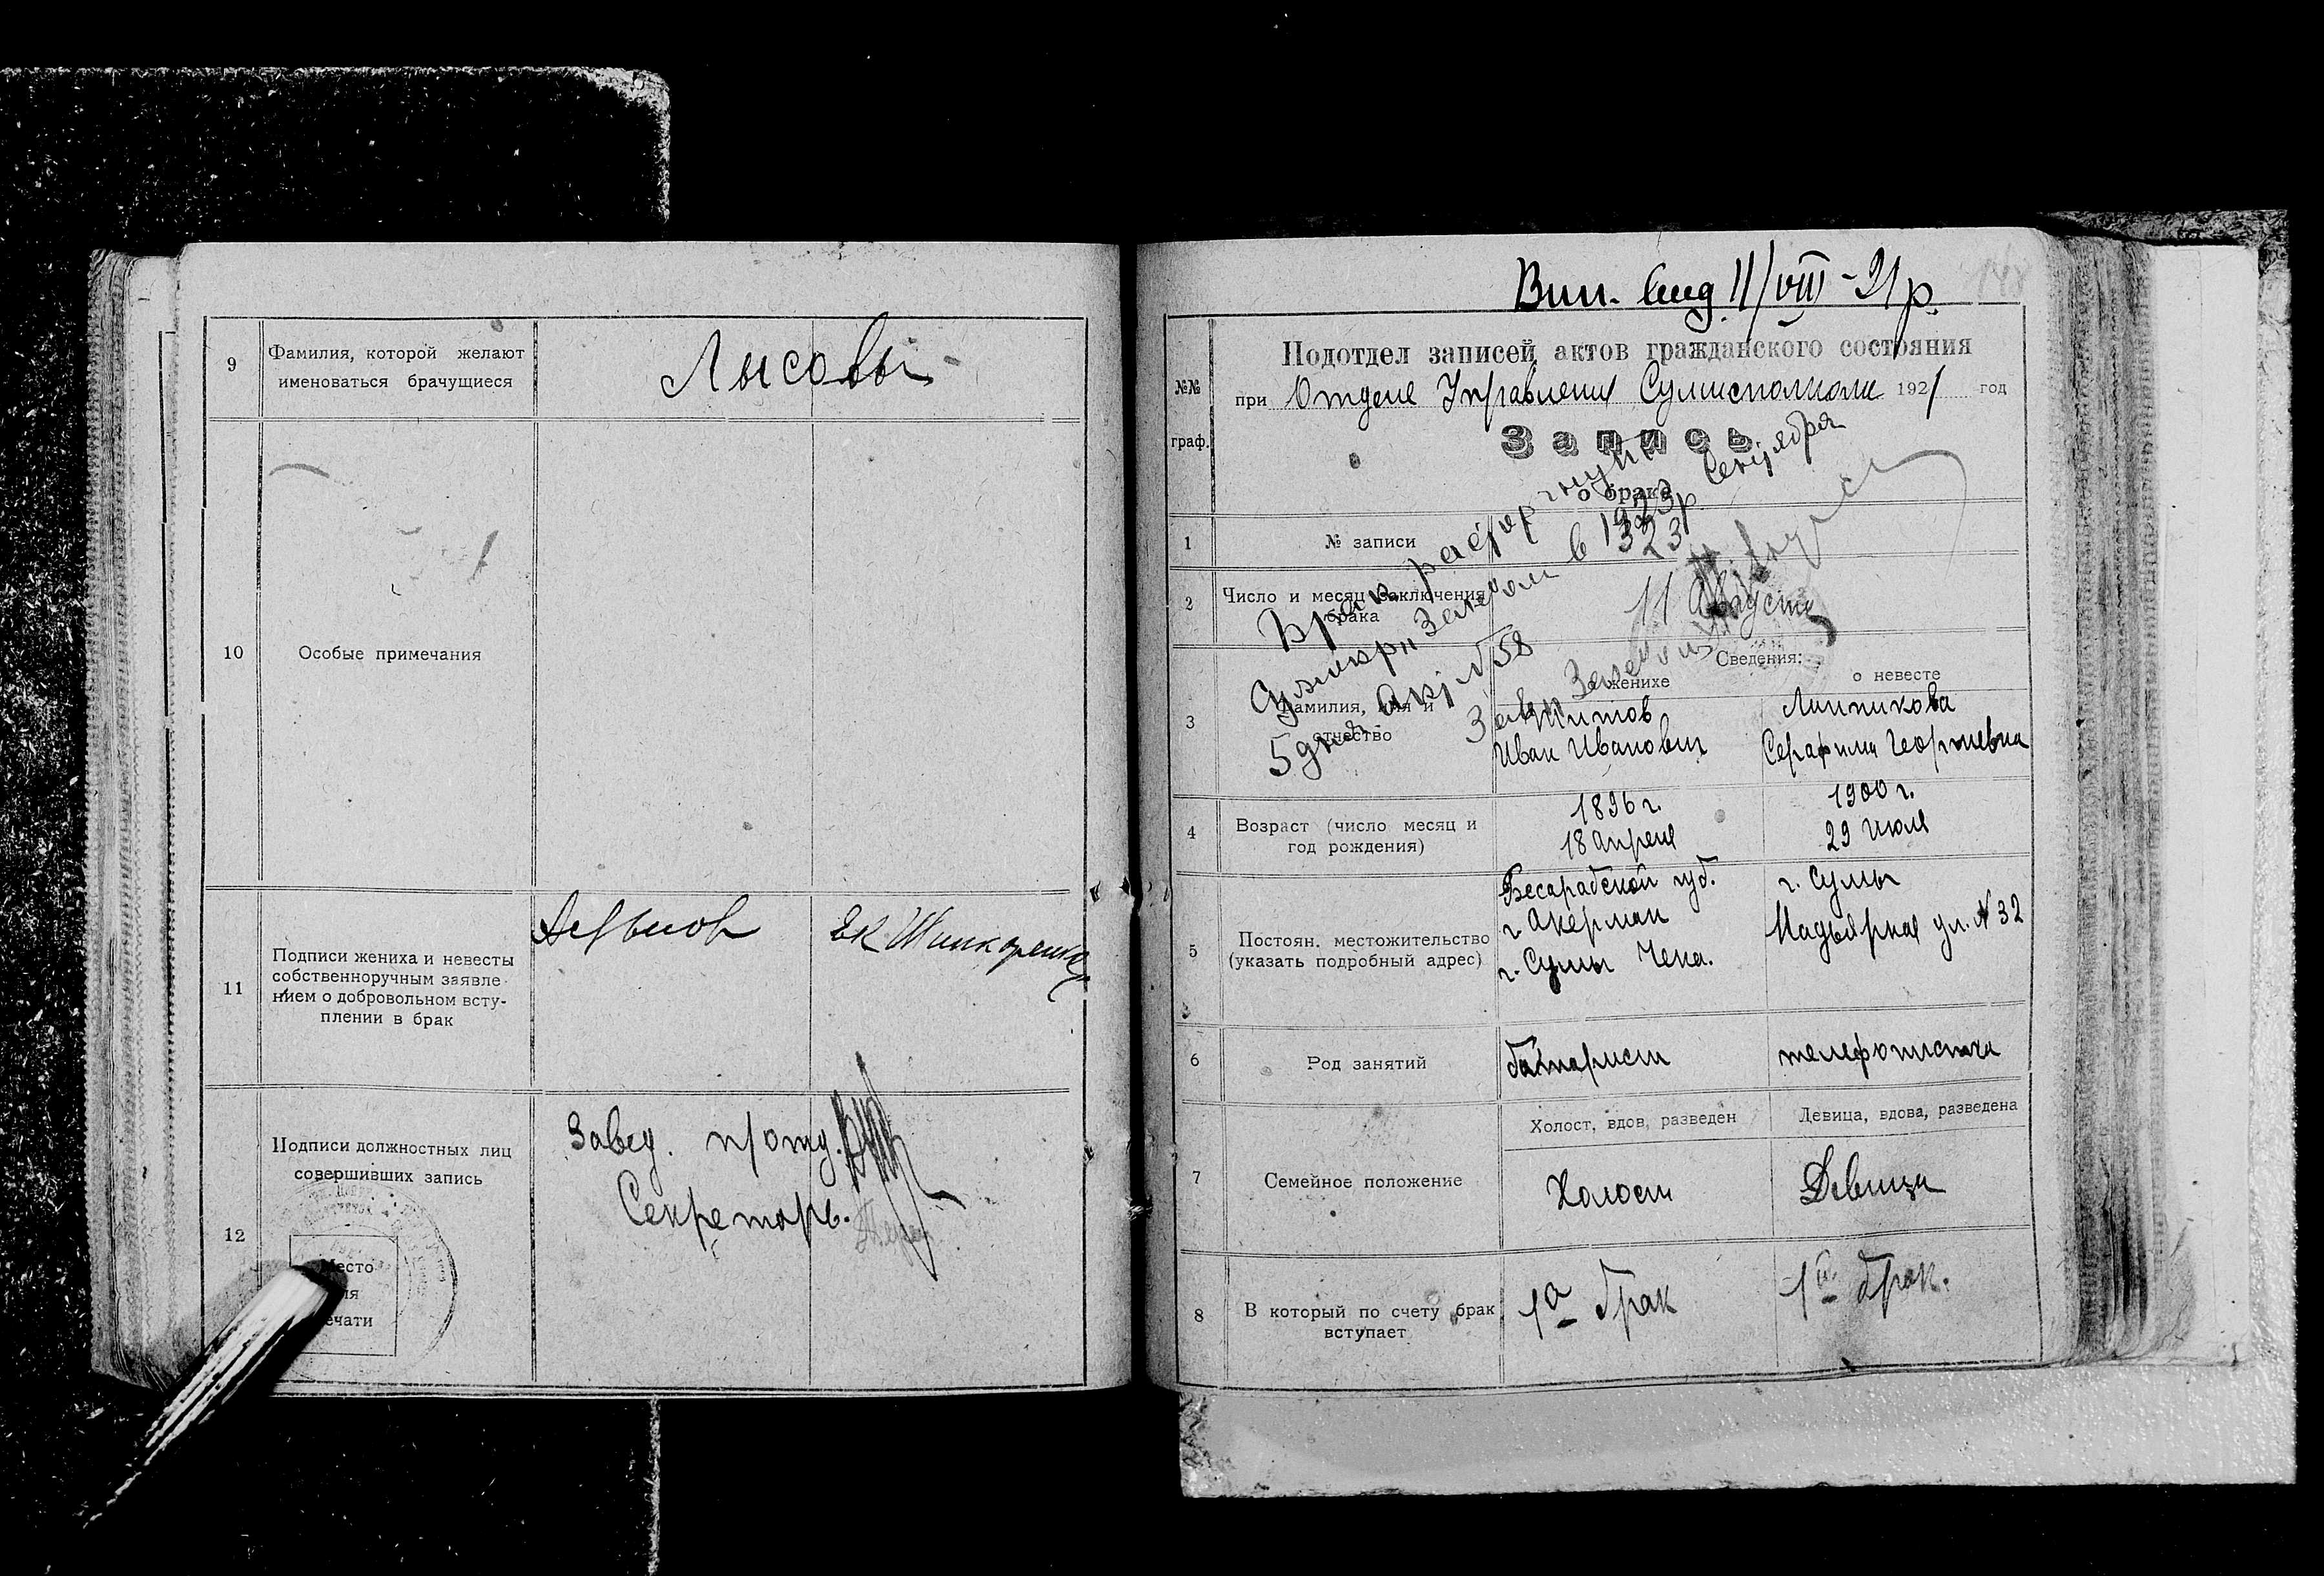 9
Фамилия, которой желают
именоваться брачущиеся
Лысовы
10
Особые примечания
11
Подписи жениха и невесты
собственноручным заявле-
нием о добровольном всту-
плении в брак
Ек Шинкаренко
12
Подписи должностных лиц
совершивших запись
Завед. п/отд.
Секретарь.
Место
для
печати
Вип. вид 11/VIII - 21 р.
№№
граф.
Подотдел записей актов гражданского состояния
при Отделе Управления Сумисполкома 1921 год
Запись
о браке
Брак расторгнут
в 1923 р. Сентября
5 дня Акт № 58
1
№ записи
323
2
Число и месяц заключения
брака
11 Августа
Сведения:
о женихе
о невесте
3
Фамилия, имя и
отчество
Иван Иванович
Липникова
Серафима Георгиевна
4
Возраст (число месяц и
год рождения)
1896 г.
18 Апреля
1900 г.
29 Июля
5
Постоян. местожительство
(указать подробный адрес)
Бесарабской губ.
г. Акерман
г. Сумы Чека.
г. Сумы
ул. № 32
6
Род занятий
телефонистка
7
Семейное положение
Холост, вдов, разведен
Девица, вдова, разведена
Холост
Девица
8
В который по счету брак
вступает
1й брак
1й брак.